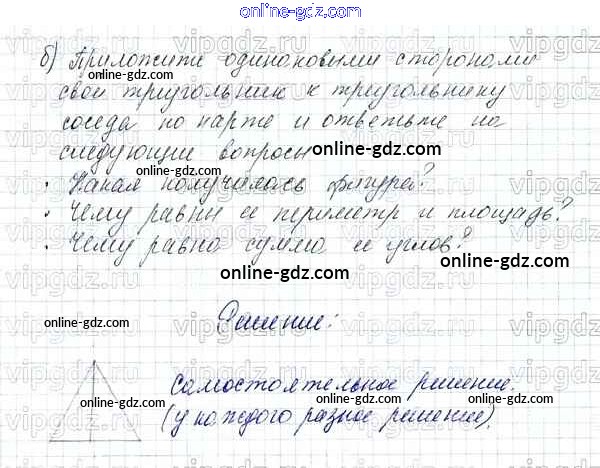 online-gdz.com
б) Приложите одинаковыми сторонами
свой треугольник к треугольнику
соседа по парте и ответьте на
следующие вопросы
• Какая получилась фигура?
• Чему равны ее периметр и площадь?
• Чему равна сумма ее углов?
Решение:
самостоятельное решение.
(у каждого разное решение).
online-gdz.com
online-gdz.com
online-gdz.com
online-gdz.com
online-gdz.com
online-gdz.com
online-gdz.com
online-gdz.com